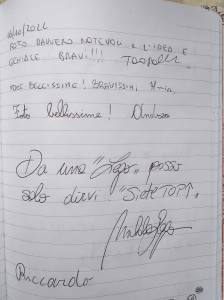 10/10/2022
FOTO DAVVERO NOTEVOLI E L'IDEA È
GENIALE BRAVI!!!
FOTO BELLISSIME! BRAVISSIMI
Foto bellissime!
Da una "Lego" posso
solo dirvi "SIETE TOP!"
Riccardo